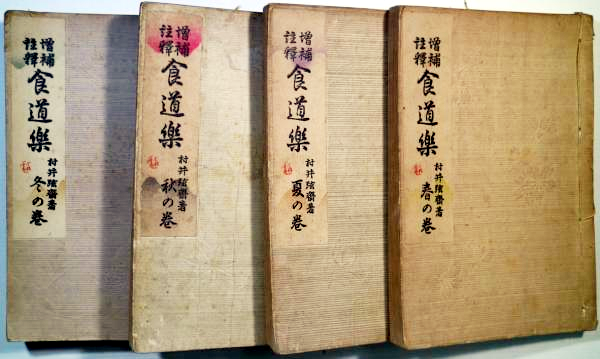 增補
註釋
食道樂
村井弦齋著
春の巻
增補
註釋
食道樂
村井弦齋著
夏の巻
增補
註釋
食道樂
村井弦齋著
秋の巻
增補
註釋
食道樂
村井弦齋著
冬の巻